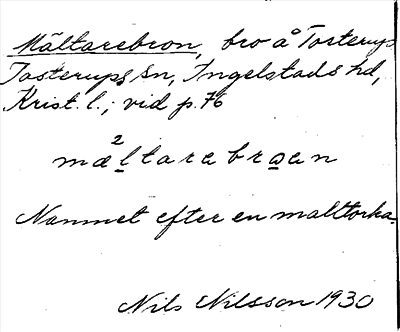 Mältarebron, bro å Tosterups
Tosterups sn, Ingelstads hd,
Krist. l.; vid p. 76
mæ²ltarebroen
Namnet efter en malttorka.
Nils Nilsson 1930